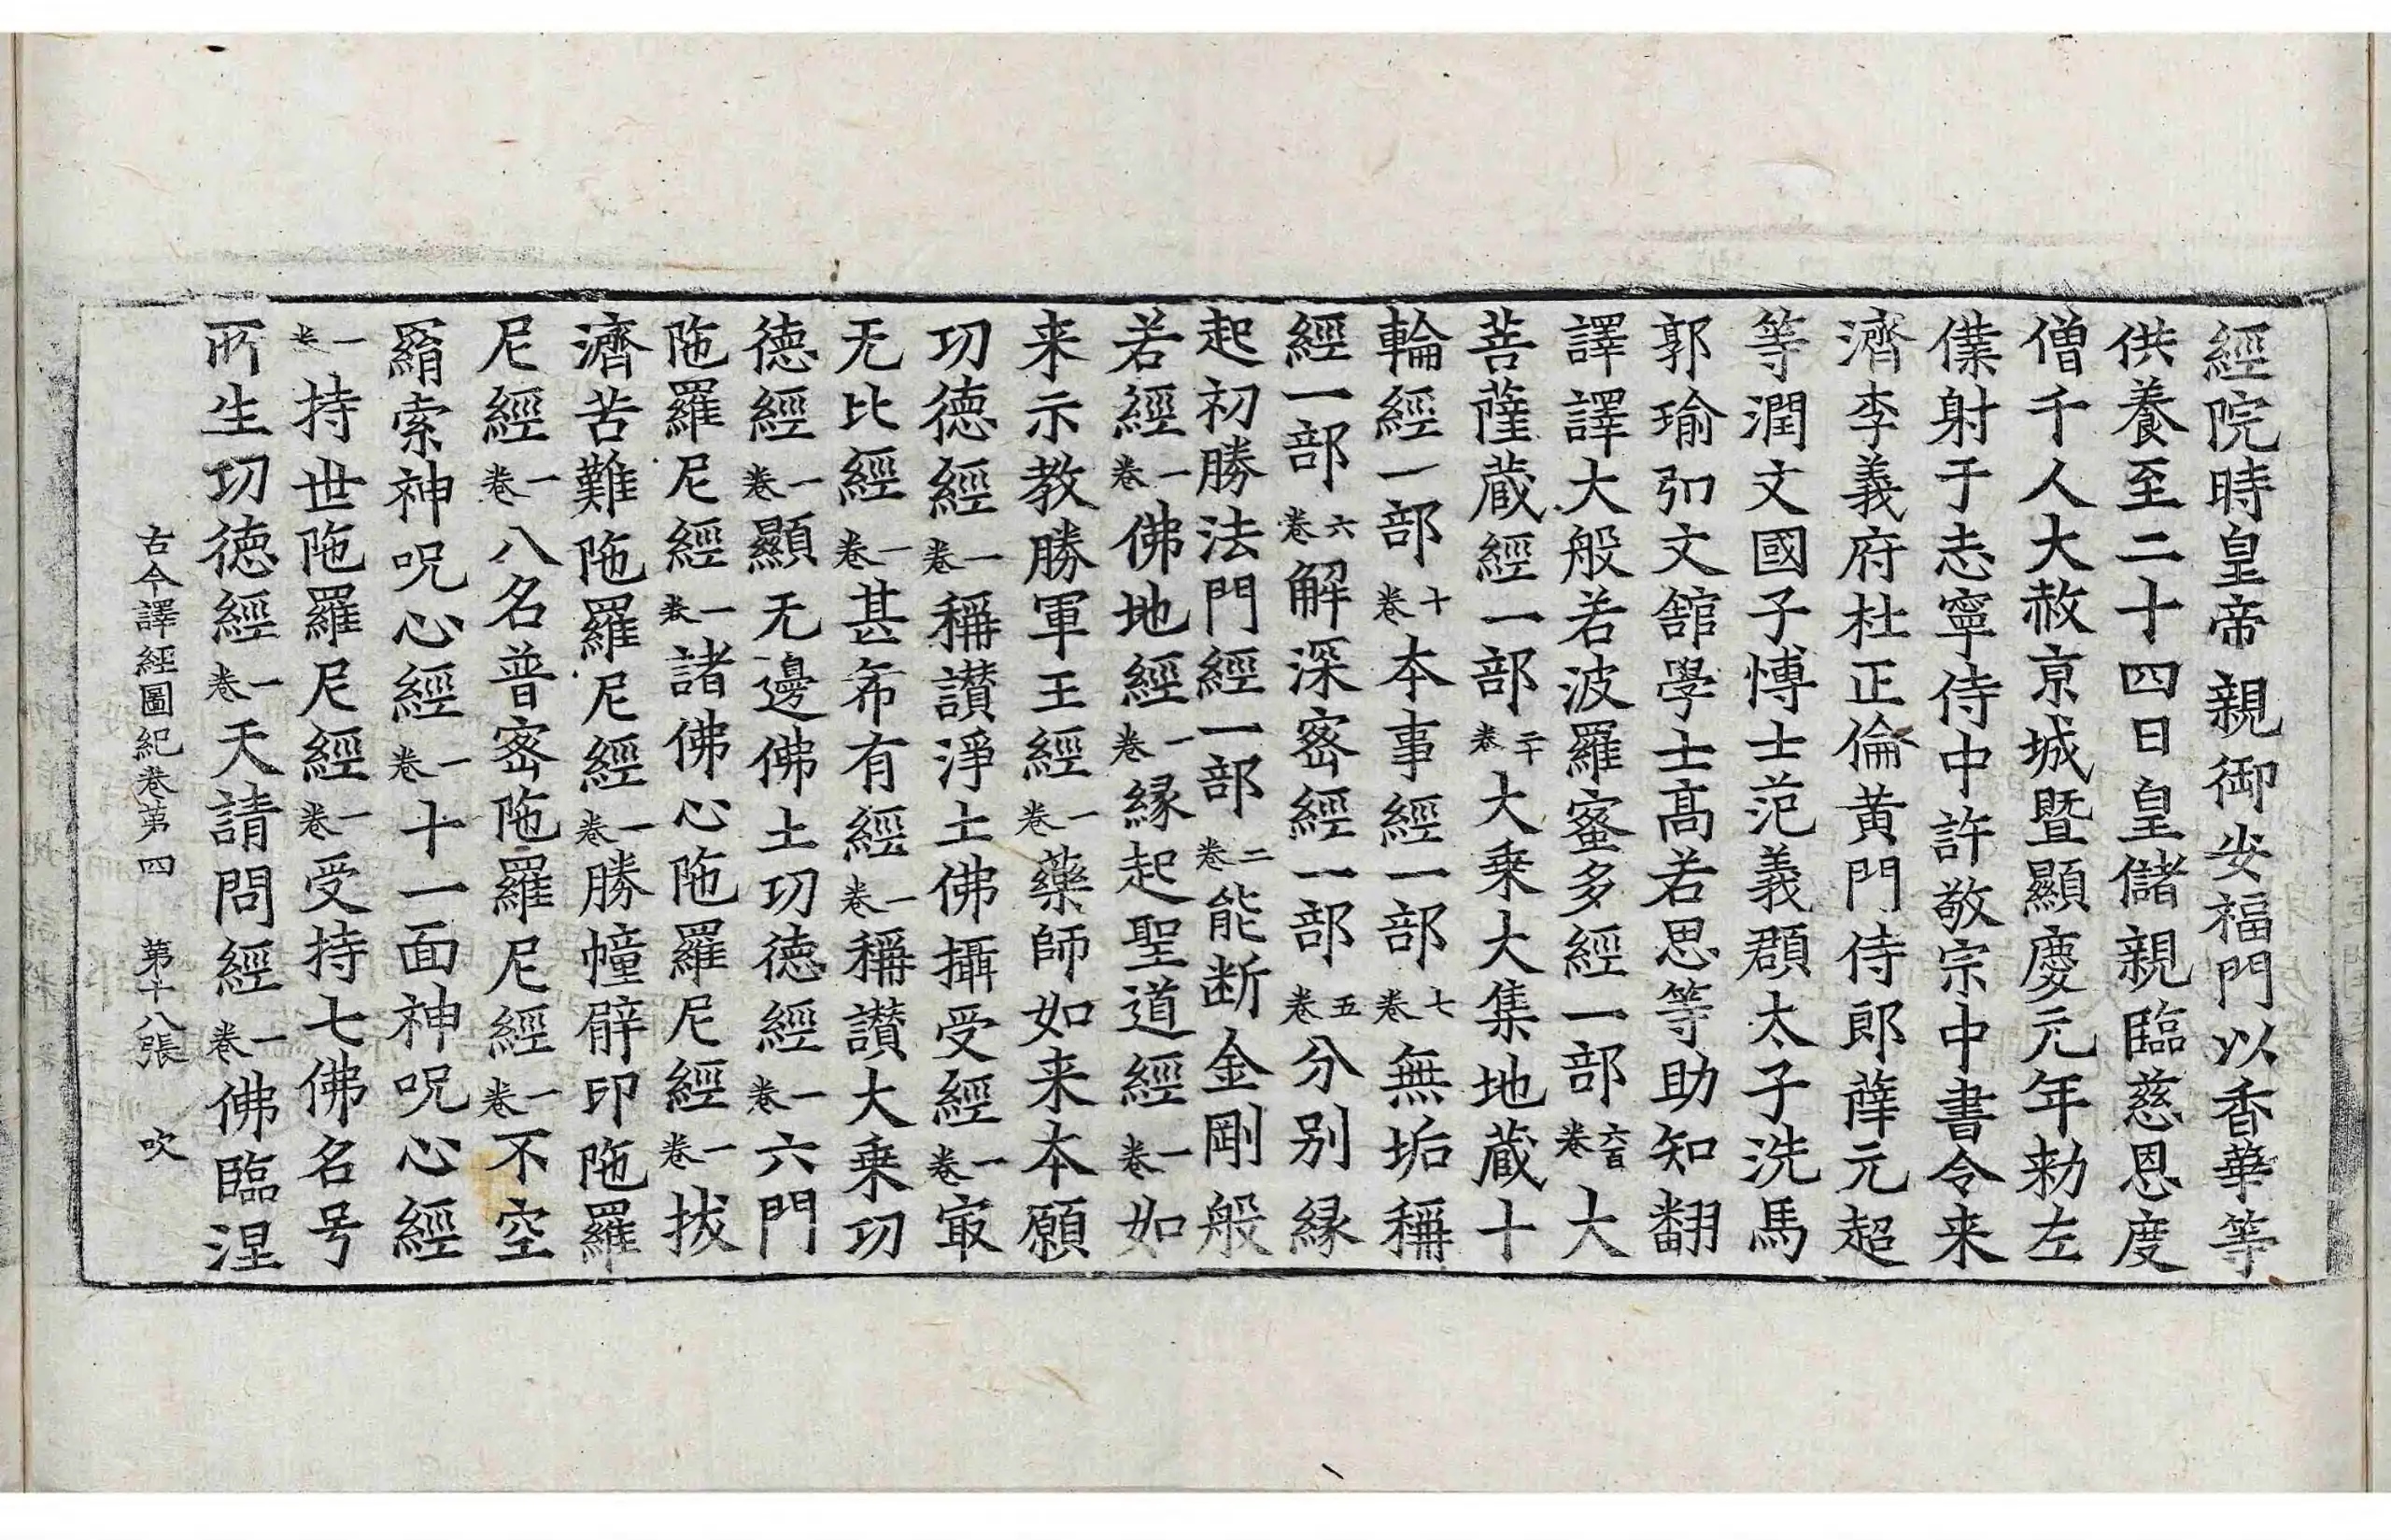 經院時皇帝親御安福門以香華等
供養至二十四日皇儲親臨慈恩度
僧千人大赦京城曁顯慶元年勑左
僕射于志寧侍中許敬宗中書令来
濟李義府杜正倫黃門侍郎薛元超
等潤文國子博士范義頵太子洗馬
郭瑜弘文舘學士髙若思等助知翻
譯譯大般若波羅蜜多經一部六百卷大
菩薩蔵經一部二十卷大乗大集地蔵十
輪經一部十卷本事經一部七卷無垢稱
經一部六卷解深密經一部五卷分別縁
起初勝法門經一部二卷能断金剛般
若經一卷佛地經一卷縁起聖道經一卷如
来示教勝軍王經一卷藥師如来本願
功德經一卷稱讃淨土佛攝受經一卷㝡
无比經一卷甚希有經一卷稱讃大乗功
德經一卷顯无邊佛土功德經一卷六門
陁羅尼經一卷諸佛心陁羅尼經一卷拔
濟苦難陁羅尼經一卷勝幢臂印陁羅
尼經一卷八名普密陁羅尼經一卷不空
羂索神呪心經一卷十一面神呪心經
一卷持世陁羅尼經一卷受持七佛名号
所生功德經一卷天請問經一卷佛臨涅
古今譯經圖紀卷第四 第十八張 吹